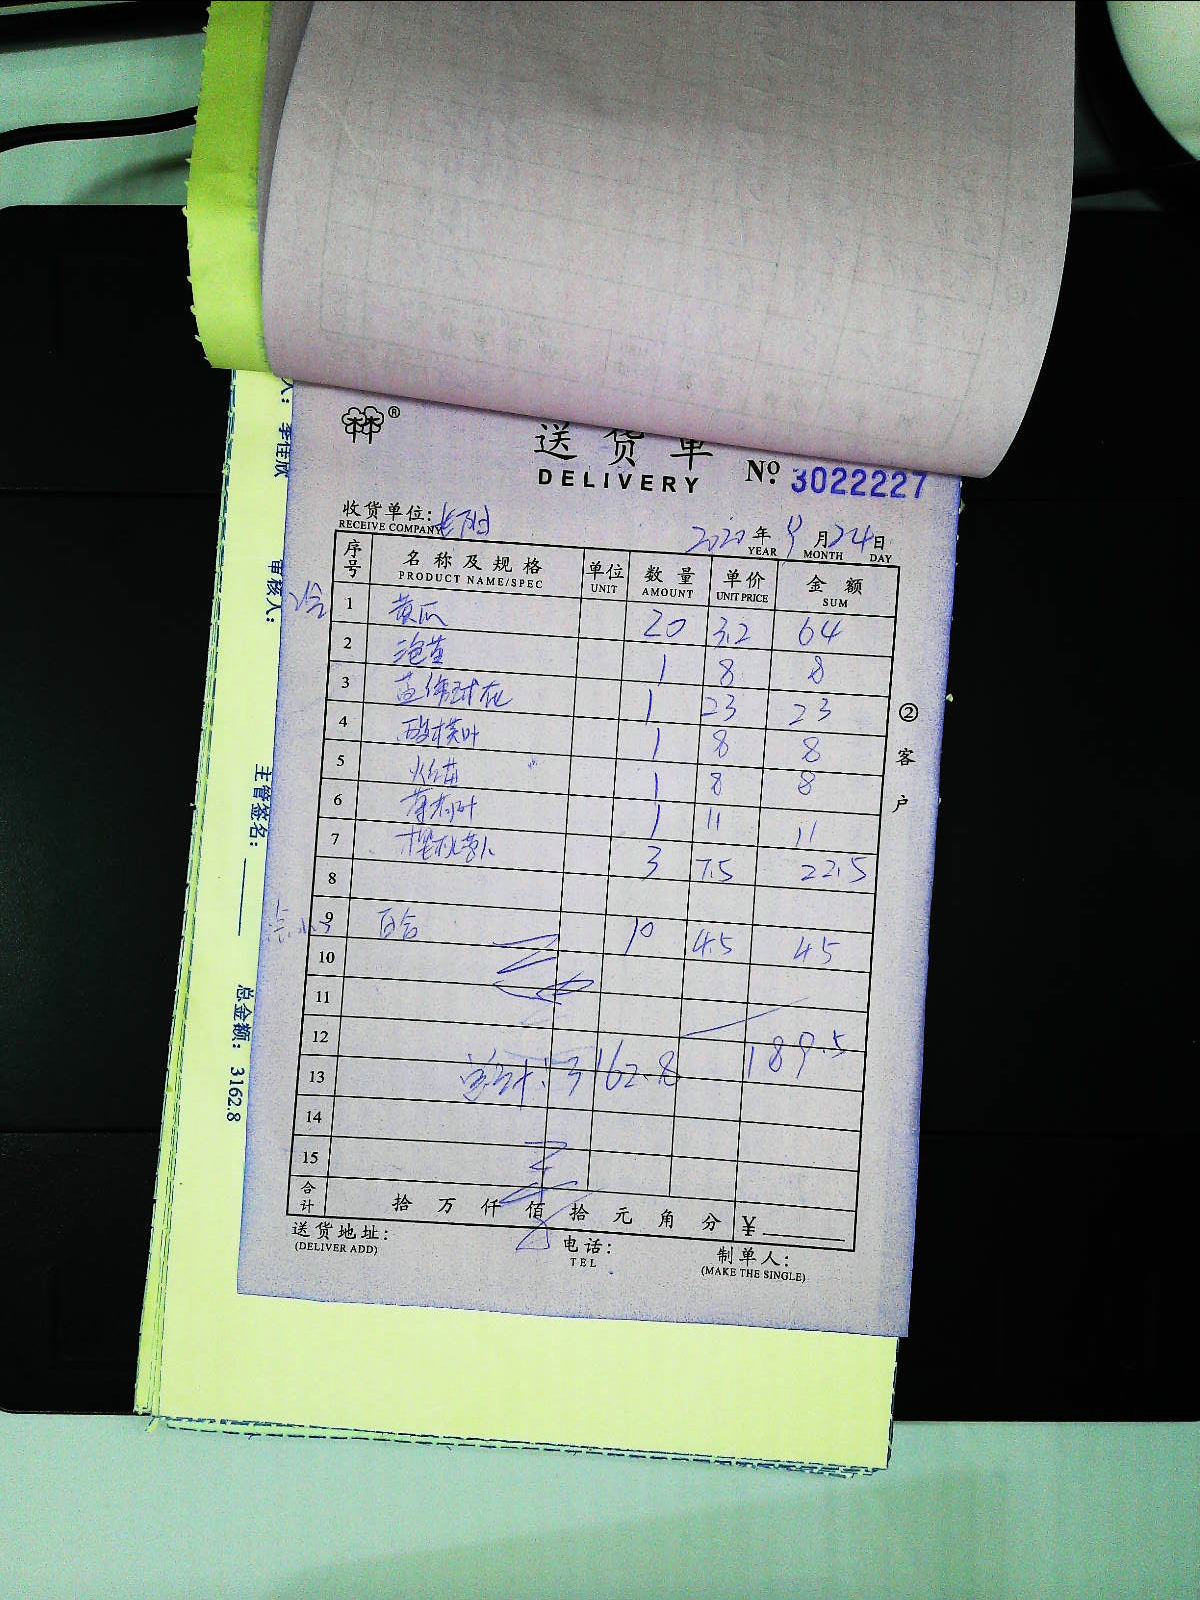 ®
送货单
DELIVERY
No. 3022227
收货单位:
RECEIVE COMPANY
2020年9月24日
YEAR MONTH DAY
序号 名称及规格 单位 数量 单价 金额
PRODUCT NAME/SPEC UNIT AMOUNT UNIT PRICE SUM
1 黄瓜 20 3.2 64
2 泡茎 1 8 8
3 球花 1 23 23
4 酸模叶 1 8 8
5 苗 1 8 8
6 叶 1 11 11
7 樱桃萝卜 3 7.5 22.5
8
9 百合 10 4.5 45
10
11
12 189.5
13 总计: 3162.8
14
15
合计 拾 万 仟 佰 拾 元 角 分 ¥
送货地址: 电话: 制单人:
(DELIVER ADD) TEL (MAKE THE SINGLE)
②客户
人: 李佳欣
审核人:
主管签名:
总金额: 3162.8